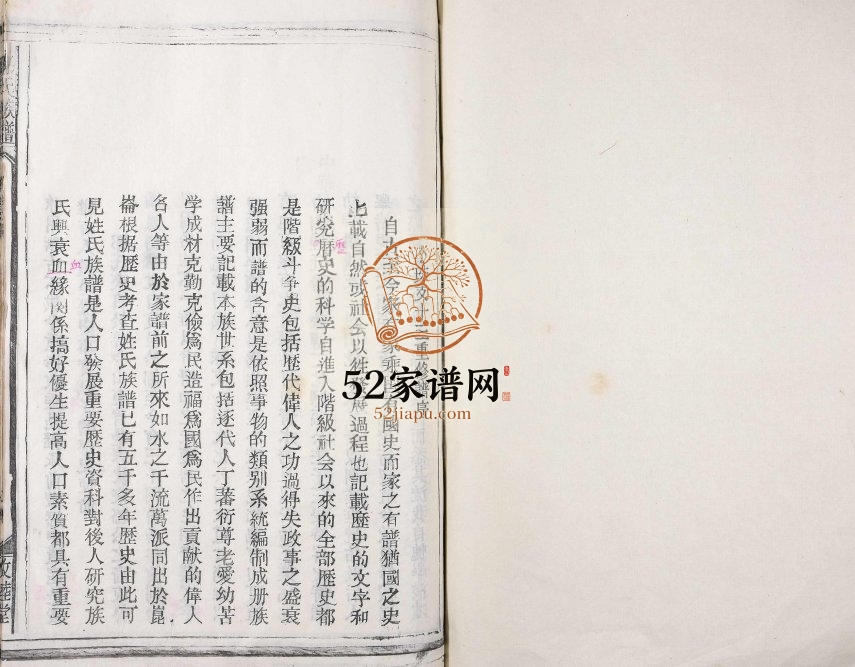 自古至今家有家乘國有國史而家之有譜猶國之史
也載自然或社会以往發展過程也記載歷史的文字和
研究曆史的科学自進入階級社会以來的全部歷史都
是階級斗争史包括歷代偉人之功過得失政事之盛衰
强弱而譜的含意是依照事物的類别系統編制成册族
譜主要記載本族世系包括逐代人丁蕃衍尊老愛幼苦
学成材克勤克儉爲民造福爲國爲民作出貢献的偉人
名人等由於家譜前之所來如水之千流萬派同出於崑
崙根据歷史考查姓氏族譜已有五千多年歷史由此可
見姓氏族譜是人口發展重要歷史資科對後人研究族
氏興衰血緣関係搞好優生提高人口素質都具有重要
歷
血
氏族譜
敦睦堂
52家谱网
52jiapu.com